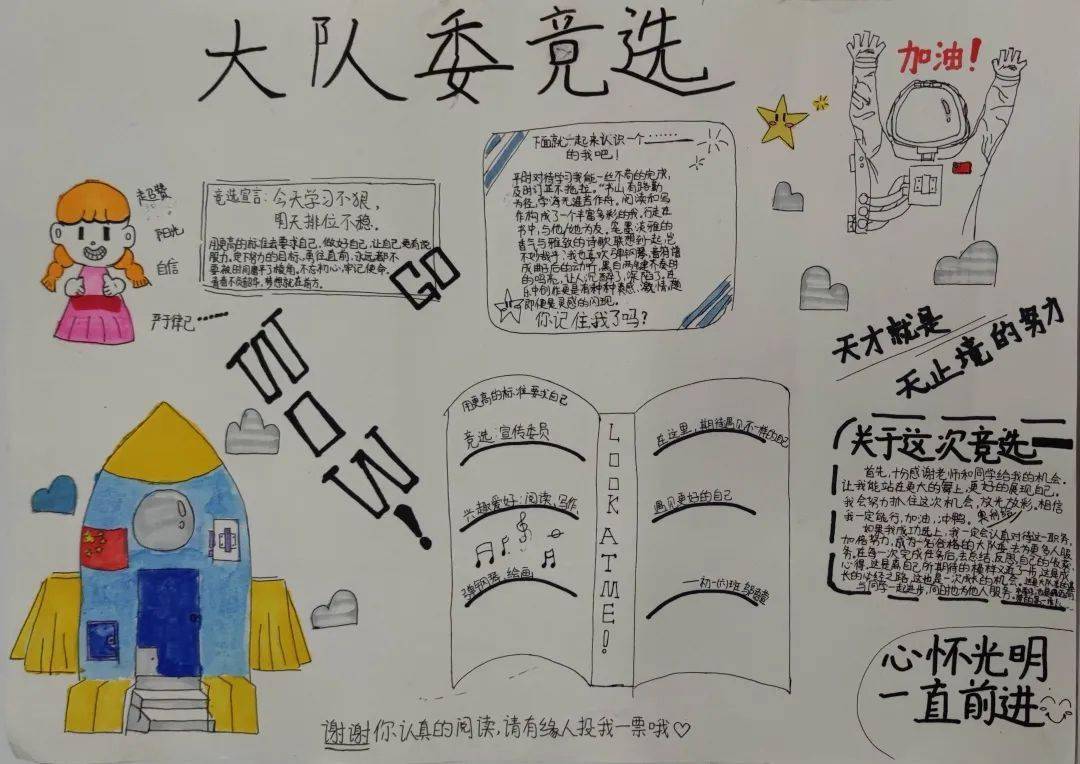 大队委竞选
加油!
超赞
阳光
自信
严于律己……
竞选宣言:今天学习不狠,
明天排位不稳。
用更高的标准去要求自己,做好自己,让自己更有说
服力。定下努力的目标,勇往直前,永远都不
要被时间磨平了棱角。不忘初心,牢记使命。
青春不负韶华,梦想就在前方。
GO
WOW!
下面就一起来认识一个……
的我吧!
平时对待学习我能一丝不苟的完成,
及时订正不拖拉。“书山有路勤
为径,学海无涯苦作舟。阅读和写
作构成了一个丰富多彩的我。行走在
书中,与他/她为友。笔墨淡雅的
香气与雅致的诗歌联想到一起,岂
不妙哉?我也喜欢弹钢琴,
成曲后的动听,黑白两键不变的
的鸣奏,让人沉醉了,深陷了。音
乐中创作更是有种种素感,激情,
即便是灵感的闪现。
你记住我了吗?
天才就是
无止境的努力
用更高的标准要求自己
竞选:宣传委员
兴趣爱好:阅读,写作,
弹钢琴,绘画
LOOK AT ME!
在这里,期待遇见不一样的自己
遇见更好的自己
——初一
关于这次竞选
首先,十分感谢老师和同学给我的机会。
让我能站在更大的舞上,更好的展现自己。
我会努力抓住这次机会,放光放彩。相信
我一定能行,加油,冲鸭。
如果我成功选上,我一定会认真对待这一职务,
加倍努力,成为一名合格的大队委,去为更多人服
务,在每一次完成任务后去总结,反思自己的收获
心得,这是离自己所期待的榜样又近了一步,这是成
长的必经之路,这也是一次成长的机会。
与同学一起进步,向由他为他人服务。
心怀光明
一直前进
谢谢你认真的阅读,请有缘人投我一票哦♡